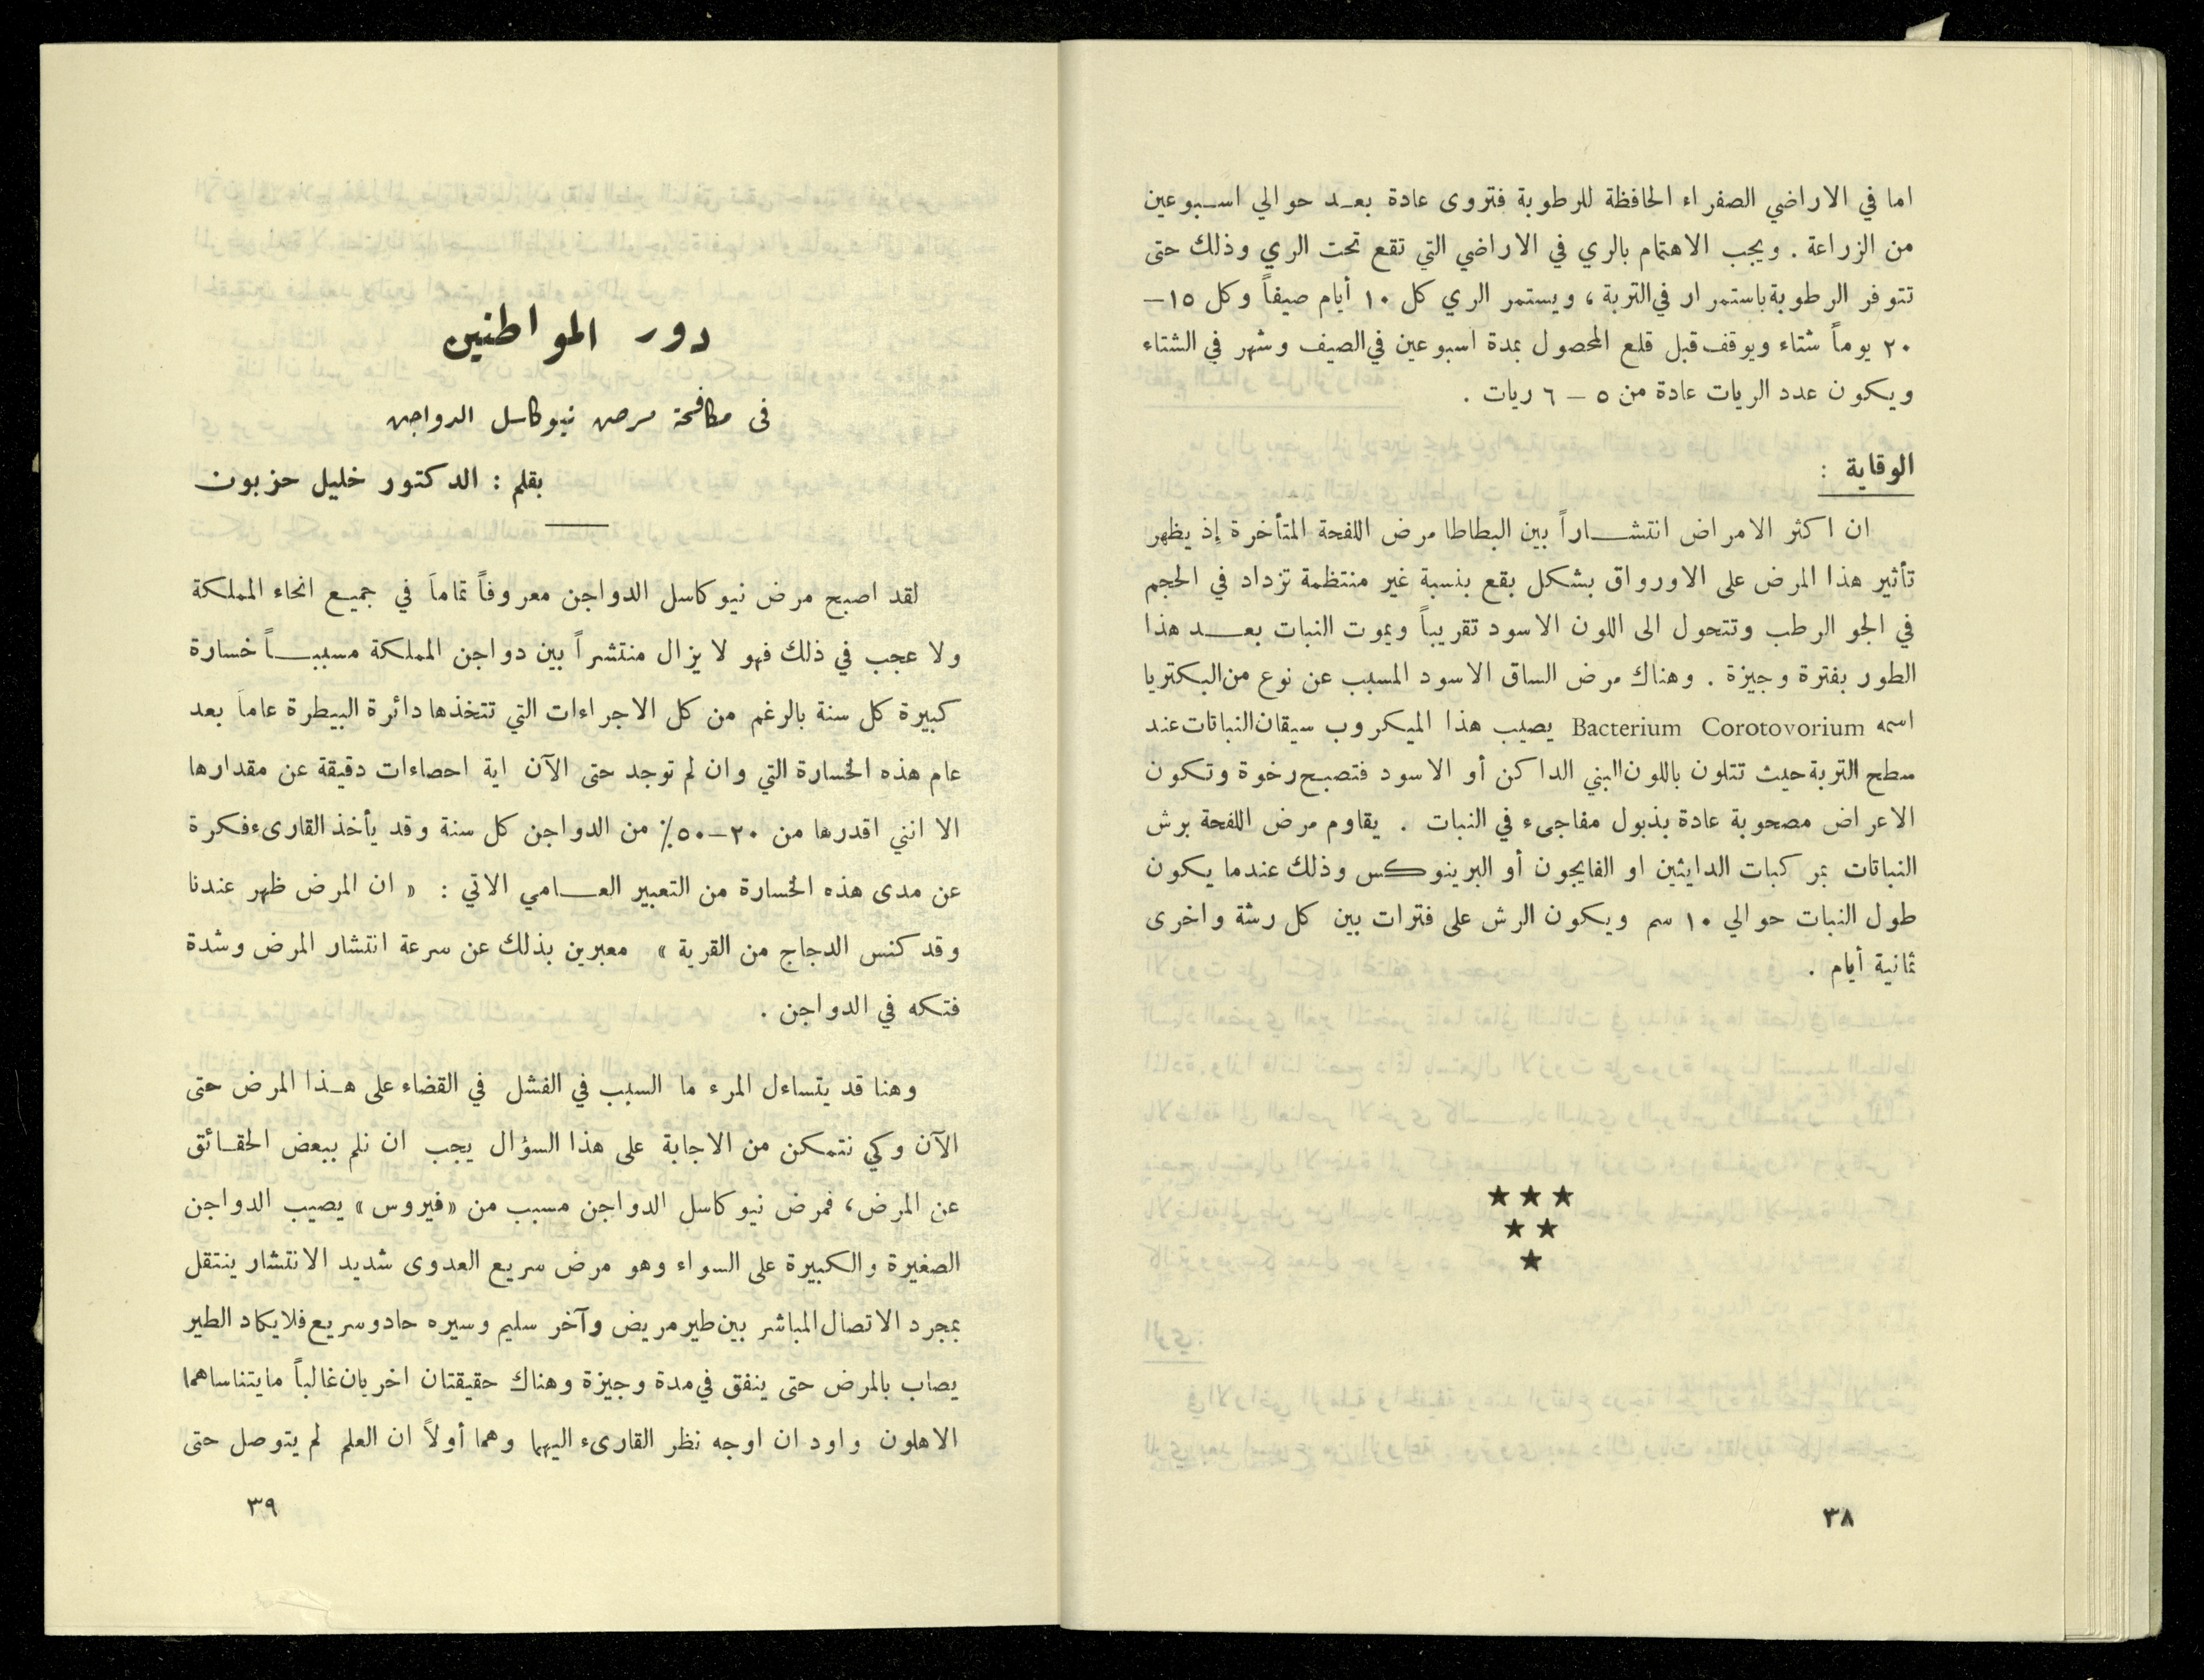 اما في الاراضي الصفراء الحافظة للرطوبة فتروى عادة بعد حوالي اسبوعين
من الزراعة . ويجب الاهتمام بالري في الاراضي التي تقع تحت الري وذلك حتى
تتوفر الرطوبة باستمرار في التربة ، ويستمر الري كل ١٠ أيام صيفاً وكل ١٥ –
٢٠ يوماً شتاء ويوقف قبل قلع المحصول بمدة اسبوعين في الصيف وشهر في الشتاء
ويكون عدد الريات عادة من ٥ – ٦ ريات .
الوقاية :
ان اكثر الامراض انتشاراً بين البطاطا مرض اللفحة المتأخرة إذ يظهر
تأثير هذا المرض على الاورواق بشكل بقع بنسبة غير منتظمة تزداد في الحجم
في الجو الرطب وتتحول الى اللون الاسود تقريباً ويموت النبات بعد هذا
الطور بفترة وجيزة . وهناك مرض الساق الاسود المسبب عن نوع من البكتريا
اسمه Bacterium Corotovorium يصيب هذا الميكروب سيقان النباتات عند
سطح التربة حيث تتلون باللون البني الداكن أو الاسود فتصبح رخوة وتكون
الاعراض مصحوبة عادة بذبول مفاجىء في النبات . يقاوم مرض اللفحة برش
النباتات بمركبات الدايثين او الفايجون أو البرينوكس وذلك عندما يكون
طول النبات حوالي ١٠ سم ويكون الرش على فترات بين كل رشة واخرى
ثمانية أيام .
٣٨
دور المواطنين
فى مكافحة مرض نيوكاسل الدواجن
بقلم : الدكتور خليل حزبون
لقد اصبح مرض نيوكاسل الدواجن معروفاً تماماً في جميع انحاء المملكة
ولا عجب في ذلك فهو لا يزال منتشراً بين دواجن المملكة مسبباً خسارة
كبيرة كل سنة بالرغم من كل الاجراءات التي تتخذها دائرة البيطرة عاماً بعد
عام هذه الخسارة التي وان لم توجد حتى الآن اية احصاءات دقيقة عن مقدارها
الا انني اقدرها من ٢٠–٥٠٪ من الدواجن كل سنة وقد يأخذ القارىء فكرة
عن مدى هذه الخسارة من التعبير العامي الاتي : « ان المرض ظهر عندنا
وقد كنس الدجاج من القرية » معبرين بذلك عن سرعة انتشار المرض وشدة
فتكه في الدواجن .
وهنا قد يتساءل المرء ما السبب في الفشل في القضاء على هذا المرض حتى
الآن وكي نتمكن من الاجابة على هذا السؤال يجب ان نلم ببعض الحقائق
عن المرض، فمرض نيوكاسل الدواجن مسبب من «فيروس» يصيب الدواجن
الصغيرة والكبيرة على السواء وهو مرض سريع العدوى شديد الانتشار ينتقل
بمجرد الاتصال المباشر بين طير مريض وآخر سليم وسيره حاد وسريع فلا يكاد الطير
يصاب بالمرض حتى ينفق في مدة وجيزة وهناك حقيقتان اخريان غالباً ما يتناساهما
الاهلون واود ان اوجه نظر القارىء اليهما وهما أولاً ان العلم لم يتوصل حتى
٣٩